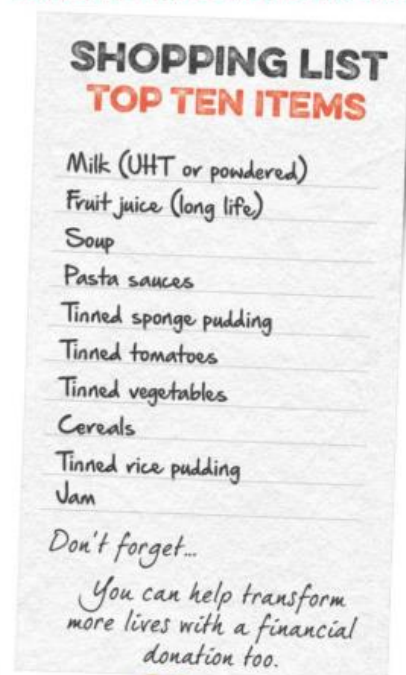 SHOPPING LIST
TOP TEN ITEMS
Milk (UHT or powdered)
Fruit juice (long life)
Soup
Pasta sauces
Tinned sponge pudding
Tinned tomatoes
Tinned vegetables
Cereals
Tinned rice pudding
Jam
Don't forget...
You can help transform
more lives with a financial
donation too.